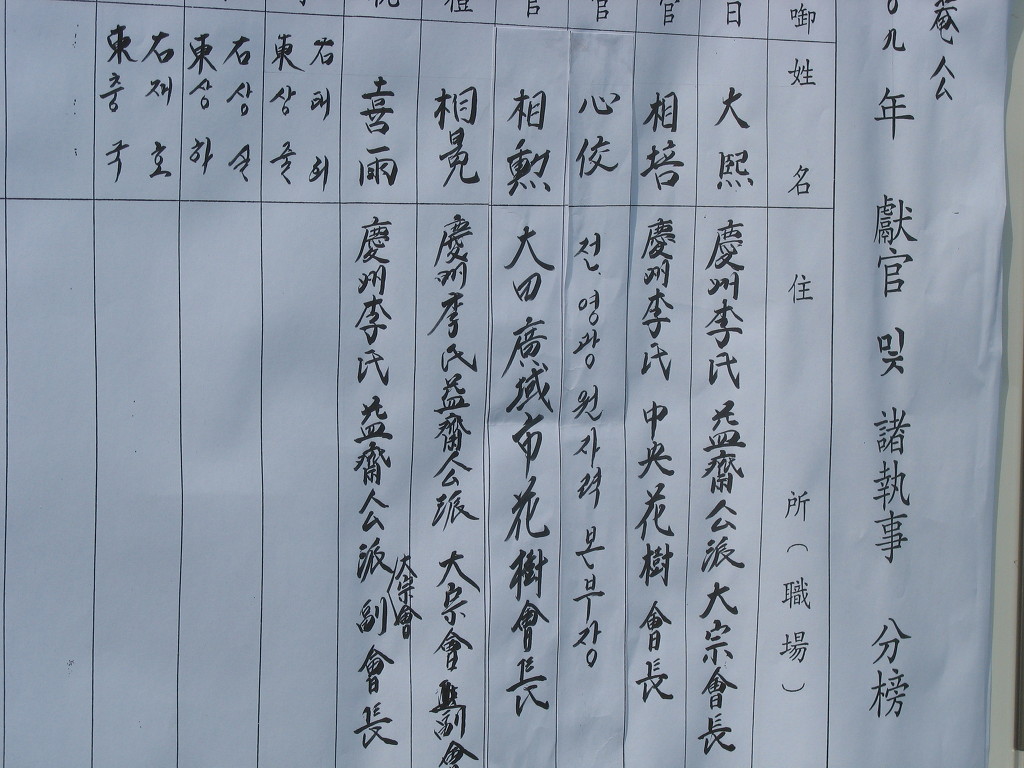 菴公
九年 獻官 및 諸執事 分榜
啣 姓名 住所(職場)
日 大熙 慶州李氏 益齋公派 大宗會長
官 相培 慶州李氏 中央花樹會長
官 心佼 전 영광원자력 본부장
官 相勲 大田廣域市 花樹會長
相晃 慶州李氏 益齋公派 大宗會 副會
祝 喜雨 慶州李氏 益齋公派 大宗會 副會長
右 태희
東 상출
右 상설
東 상하
右 재호
東 충국